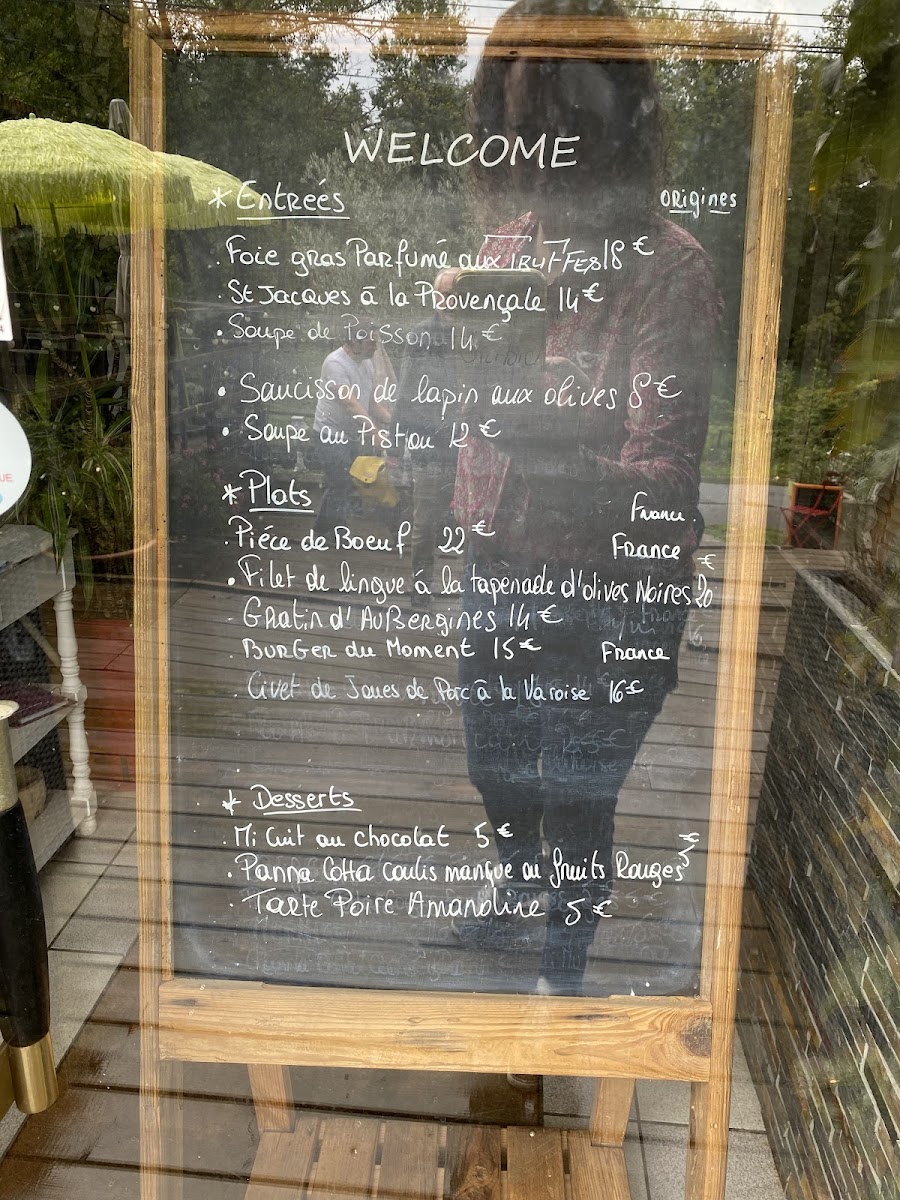 WELCOME
* Entreés
origines
. Foie gras Parfumé aux Truffes 18 €
. St Jacques à la Provençale 14 €
. Soupe de Poisson 14 €
. Saucisson de lapin aux olives 8 €
. Soupe au Pistou 12 €
* Plats
France
. Piéce de Boeuf 22 €
France
. Filet de lingue à la tapenade d'olives Noires 20 €
. Gratin d'Aubergines 14 €
. Burger du Moment 15 € France
. Civet de Joues de Porc à la Varoise 16 €
* Desserts
. Mi Cuit au chocolat 5 €
. Panna Cotta coulis mangue ou fruits Rouges 5 €
. Tarte Poire Amandine 5 €
UE